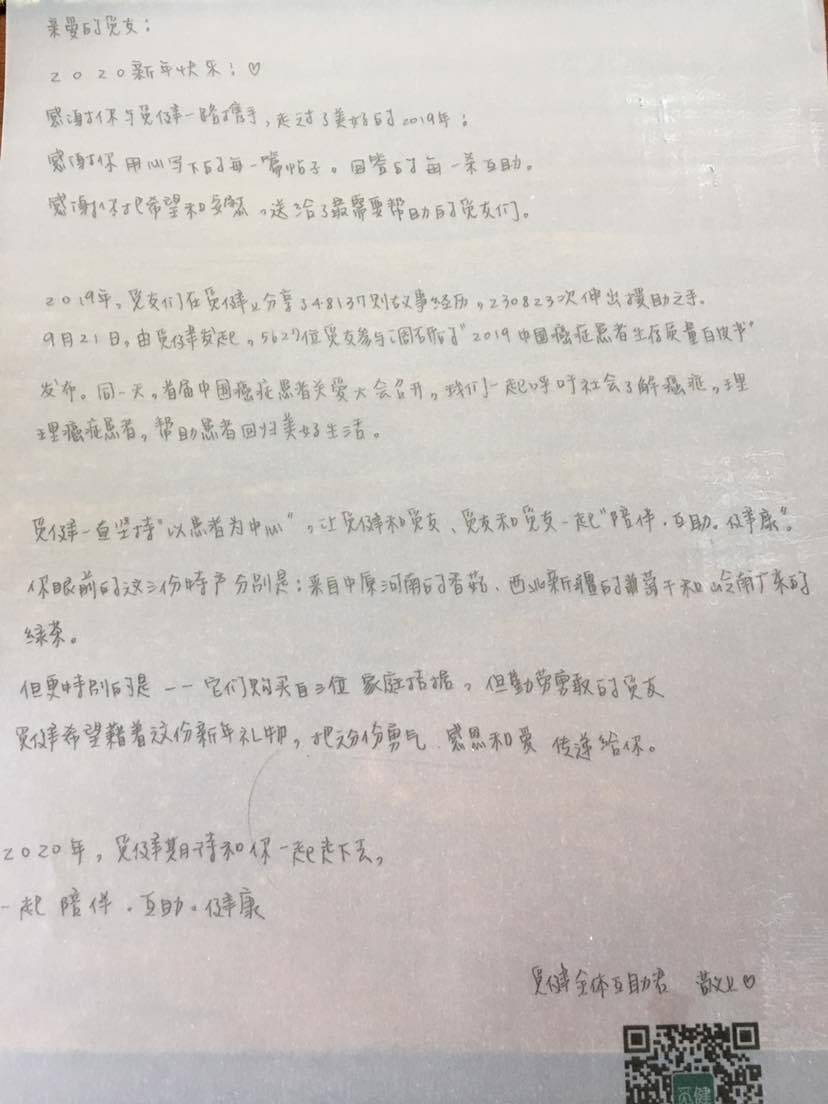 亲爱的觅友：
2020新年快乐！♡
感谢你与觅健一路携手，走过了美好的2019年；
感谢你用心写下的每一篇帖子。回答的每一条互助。
感谢你把希望和安慰，送给了最需要帮助的觅友们。
2019年，觅友们在觅健上分享了48137则故事经历，230823次伸出援助之手。
9月21日，由觅健发起，5627位觅友参与调研的“2019中国癌症患者生存质量白皮书”
发布。同一天，首届中国癌症患者关爱大会召开，我们一起呼吁社会了解癌症，理
理癌症患者，帮助患者回归美好生活。
觅健一直坚持“以患者为中心”，让觅健和觅友、觅友和觅友一起“陪伴．互助。健康”。
你眼前的这三份特产分别是：来自中原河南的香菇、西北新疆的葡萄干和岭南广东的
绿茶。
但更特别的是——它们购买自三位 家庭拮据，但勤劳勇敢的觅友
觅健希望藉着这份新年礼物，把这份勇气、感恩和爱 传递给你。
2020年，觅健期待和你一起走下去，
一起 陪伴．互助．健康
觅健全体互助君 敬上♡
觅健